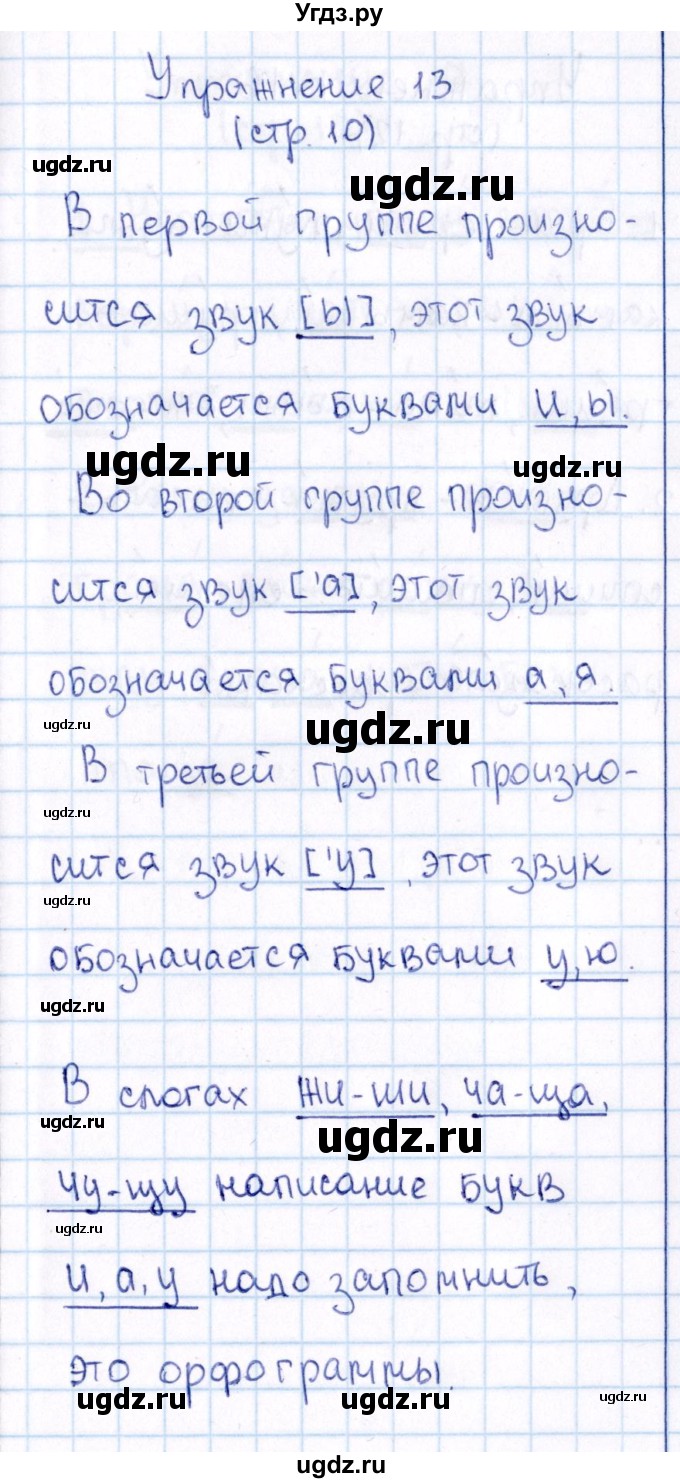 Угдз.ру
Упражнение 13
(стр. 10)
ugdz.ru
ugdz.ru
В первой группе произно-
сится звук [ы], этот звук
обозначается буквами и, ы.
ugdz.ru
ugdz.ru
Во второй группе произно-
сится звук ['а], этот звук
обозначается буквами а, я.
ugdz.ru
ugdz.ru
В третьей группе произно-
ugdz.ru
сится звук ['у], этот звук
ugdz.ru
обозначается буквами у, ю.
ugdz.ru
В слогах жи-ши, ча-ща,
ugdz.ru
ugdz.ru
чу-щу написание букв
ugdz.ru
и, а, у надо запомнить,
это орфограммы.
ugdz.ru
ugdz.ru
ugdz.ru
ugdz.ru